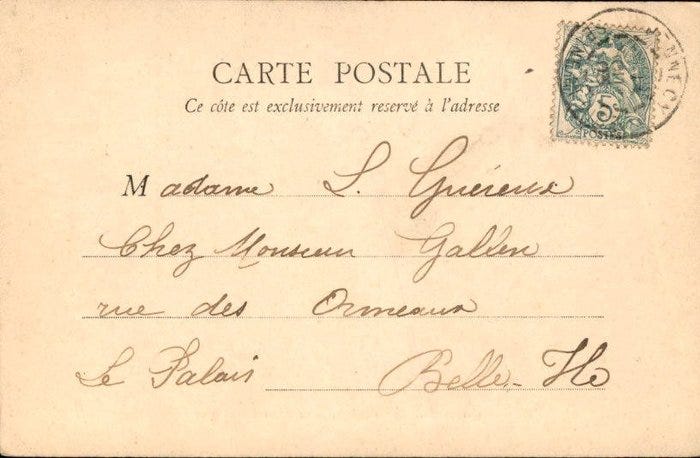 CARTE POSTALE
Ce côte est exclusivement reservé à l'adresse
ANNECY
5c
POSTES
Madame L. Guéreux
Chez Monsieur Gallen
rue des Ormeaux
Le Palais Belle-Ile